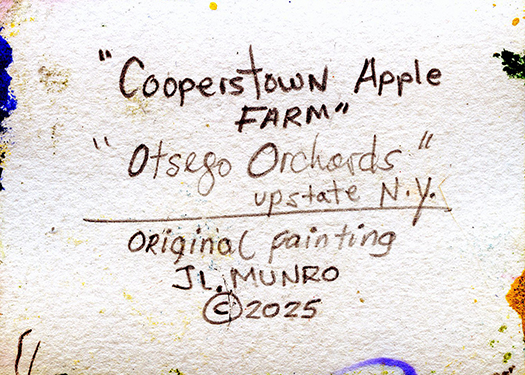 "Cooperstown Apple
FARM"
"Otsego Orchards"
upstate N.Y.
Original painting
JL. MUNRO
©2025